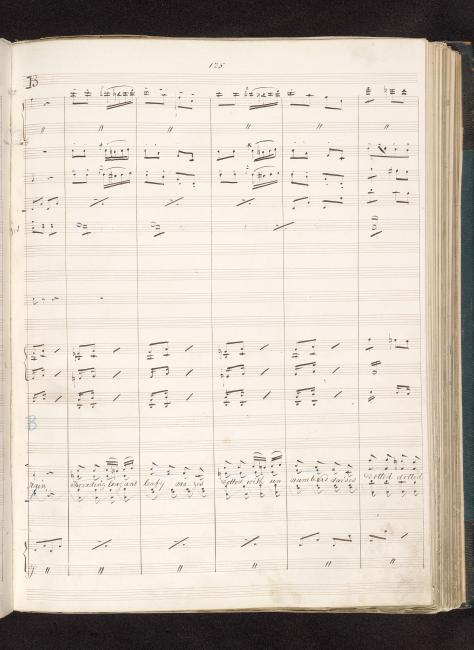 125
B
B
again Threading long and leafy mazes Dotted with un number'd daisies Dotted dotted